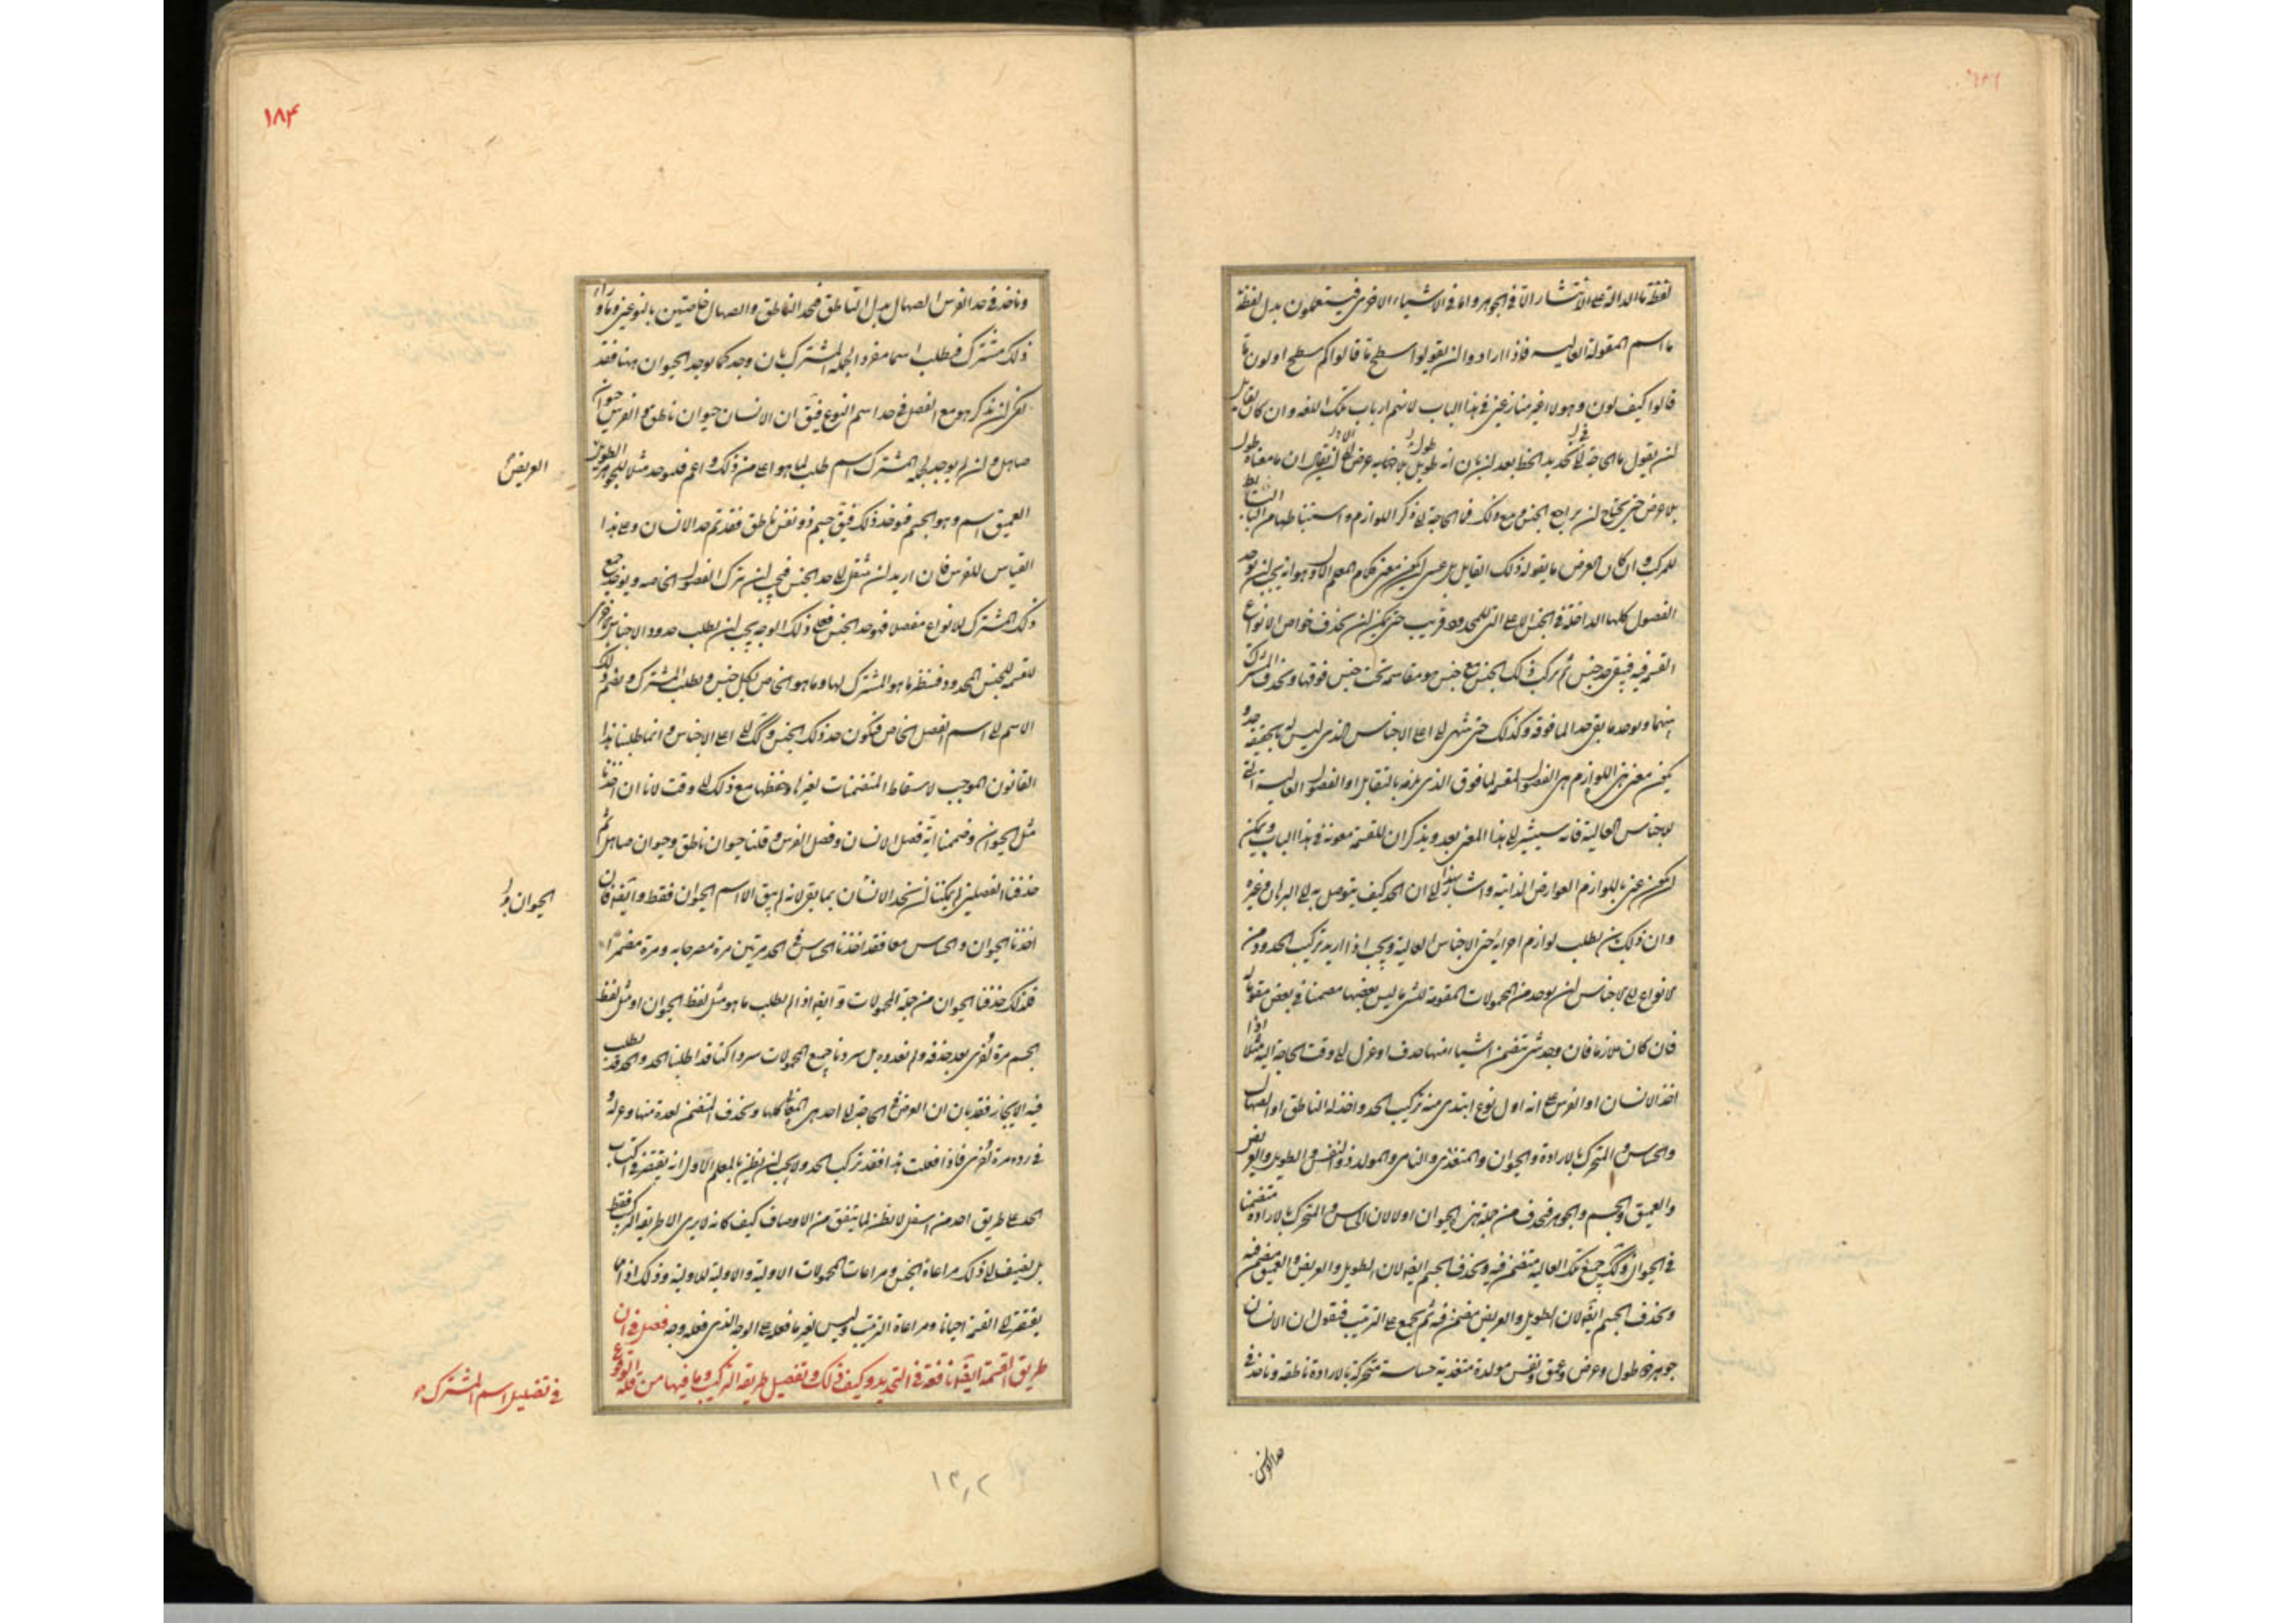 لفظة ما الدالة على الانتشار اما في الجوهر واما في الاشياء الاخرى فيستعملون بدل لفظة
ما اسم المقولة العالية فاذا ارادوا ان يقولوا سطح ما قالوا كم سطح او لون ما
قالوا كيف لون وهولاء غير منازعين في هذا الباب لانهم ارباب تلك اللغه وان كان لقايل
ان يقول ما الحاجة الى تحديد الخط بعد ان بان انه طول بلا عرض ان يقال ان ما معناه طول
بلا عرض حتى يحتاج ان يراجع الجنس ومع ذلك فما الحاجة الى ذكر اللوازم واستنباطها من البسائط
للمركب وان كان الغرض ما يقوله ذلك القايل بل عسى ان يكون معنى كلام المعلم الاول هو انه يجب ان يوخذ
الفصول كلها الداخلة في الجنس الاعلى التي للمحدود قريب حتى يمكن ان يحذف خواص الانواع
القسيمة فيه فيبقى حد جنس ثم يركب ذلك الجنس مع جنس هو مقاسمه تحت جنس فوقها ويحذف المشترك
بينهما ويوخذ ما بقى حدا لما فوقه وكذلك حتى ينتهى الى اعلى الاجناس الذى ليس له بالحقيقة حد و
يكون معنى هذه اللوازم هى الفصول المقسمة لما فوق الذى يلزمه بالتقابل او الفصول العالية التى
للاجناس العالية فانه سيشير الى هذا المعنى بعد ويذكر ان للقسمة معونة في هذا الباب ويمكن
ان يكون عنى باللوازم العوارض الذاتية واشار بهذا الى ان الحد كيف يتوصل به الى البرهان وغيره
وان ذلك بان يطلب لوازم اجزائه حتى الاجناس العالية ويجب اذا اريد تركيب الحدود من
الانواع الى الاجناس ان يوخذ من المحمولات المقومة للشى ما ليس بعضها مضمنا في بعض مقوماته
فان كان ملازما فان وجد شى يتضمن اشياء منها حذف او عزل الى وقت الحاجة اليه مثلا اذا
اخذ الانسان او الفرس على انه اول نوع ابتدى منه تركيب الحد واخذ له الناطق او الصهال
والحساس والمتحرك بالارادة والحيوان والمتغذى والنامى والمولد وذو النفس والطويل والعريض
والعميق والجسم والجوهر فيحذف من جملة هذه الحيوان اولا لان الحساس والمتحرك بالارادة متضمنا
في الحيوان وكذلك جميع تلك العالية متضمن فيه ويحذف الجسم ايضا لان الطويل والعريض والعميق مضمن فيه
ويحذف الجسم ايضا لان الطويل والعريض مضمن فيه ثم يجمع على الترتيب فيقول ان الانسان
جوهر ذو طول وعرض وعمق ونفس مولدة متغذية حساسة متحركة بالارادة ناطقة وناخذ في
حد الفرس
١٨٤
وناخذ في حد الفرس الصهال بدل الناطق فنجد الناطق والصهال خاصتين بالنوعين وما وراء
ذلك مشترك فيطلب اسما مفردا لجملة المشترك بان وجد كما يوجد الحيوان ههنا فقد
يمكن ان يذكر هو مع الفصل في حد اسم النوع فيق ان الانسان حيوان ناطق والفرس حيوان
صاهل وان لم يوجد لجملة المشترك اسم طلب لما هو اعلى من ذلك واعم فليوخذ مثلا للجوهر الطويل
العريض
العميق اسم وهو الجسم فيوخذ ذلك فيق جسم ذو نفس ناطق فقد تم حد الانسان وعلى هذا
القياس للفرس فان اريد ان ينتقل الى حد الجنس فيجب ان يترك الفصول الخاصة ويوخذ جميع
ذلك المشترك للانواع مفصلا فهو حد الجنس فعلى ذلك الوجه يجب ان يطلب حدود الاجناس الاخرى
القسيمة للجنس المحدود فينظر ما هو المشترك لها وما هو الخاص لكل جنس ويطلب المشترك ويضم ذلك
الاسم الى اسم الفصل الخاص فيكون حد ذلك الجنس وكذلك الى اعلى الاجناس وانما طلبنا هذا
القانون الموجب لاسقاط المتضمنات لغيرها وحفظها مع ذلك الى وقت لانا ان اخذنا
مثل الحيوان وضممنا اليه فصل الانسان وفصل الفرس وقلنا حيوان ناطق وحيوان صاهل ثم
حذفنا الفصلين لم يمكننا ان نحد الانسان بما بقى لانه لم يبق الا اسم الحيوان فقط وايضا فان
الحيوان و
اخذنا الحيوان والحساس معا فقد اخذنا الحساس في الحد مرتين مرة مصرحا به ومرة مضمرا
فلذلك حذفنا الحيوان من جملة المحمولات وايضا اذا لم يطلب ما هو مثل لفظ الحيوان او مثل لفظ
الجسم مرة اخرى بعد حذفه ولم نعده بل سردنا جميع المحمولات سردا كنا قد اطلنا الحد والحد قد يطلب
فيه الايجاز فقد بان ان الغرض في الحاجة الى احد هذه المعانى كلها ويحذف المتضمن لعدة منها وعزله و
في رده مرة اخرى فاذا فعلت هذا فقد تركب الحد ولا يجب ان يظن بالمعلم الاول انه يقتصر في اكتساب
الحد على طريق اخذ من اسفل لا يظن لما يتفق من الاوصاف كيف كانه لا يرى الا طريقة التركيب فقط
بل يضيف الى ذلك مراعاة الجنس ومراعات المحمولات الاولية والاولية للاولية وذلك اذ اما
يفتقر الى القسمة احيانا ومراعاة الترتيب وليس يضره ما فعله على الوجه الذى فعله وجه فصل في ان
طريق القسمة ايضا نافعة في التحديد وكيف ذلك وتفصيل طريقة التركيب وما فيها من قلة الوقوع
في تضليل اسم المشترك